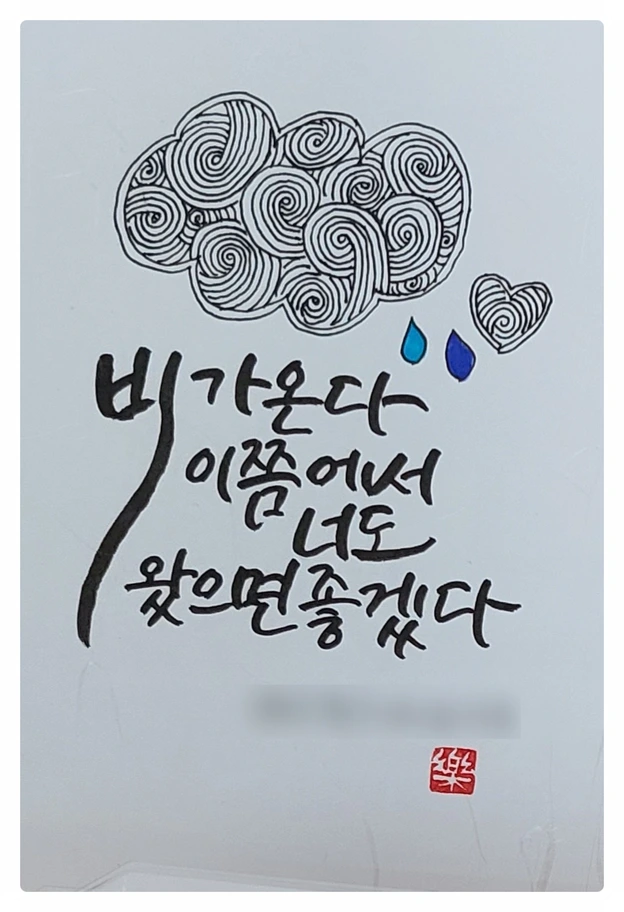 비가온다
이쯤어서
너도
왔으면좋겠다
樂